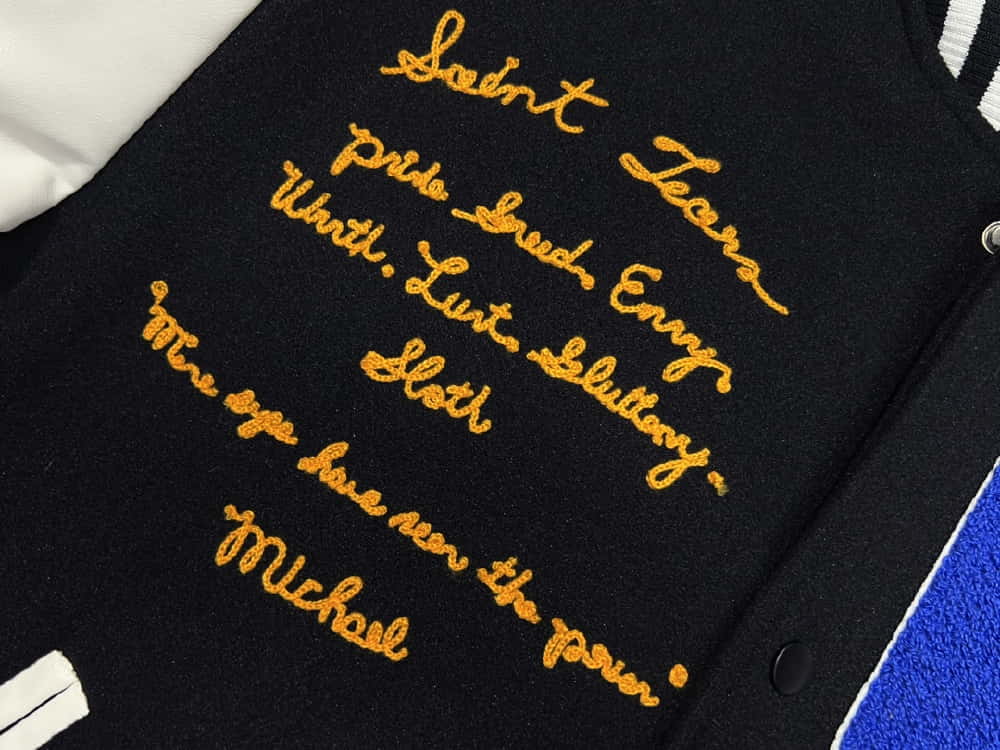 Saint Tears
pride. Greed. Envy.
Wrath. Lust. Gluttony.
Sloth
Mine eye have seen the
Michael